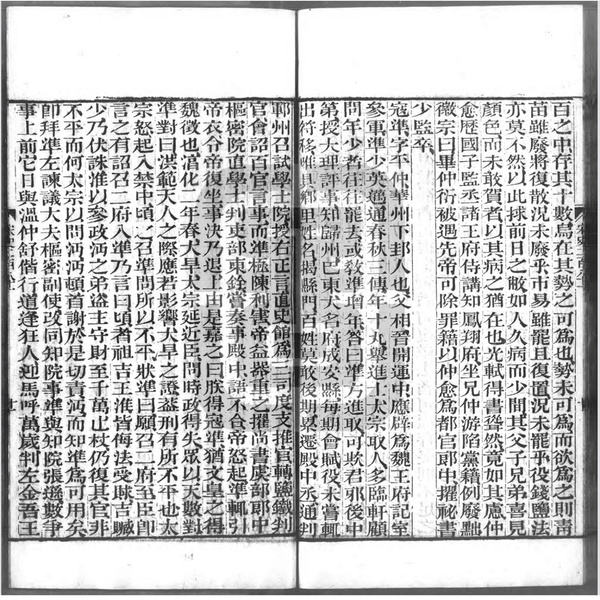 百之中存其十數烏在其勢之可為也勢未可為而欲為之則青
苗雖廢將復散況未廢乎市易雖罷且復置況未罷乎役錢鹽法
亦莫不然以此捄前日之敝如人久病而少間其父子兄弟喜見
顏色而未敢賀者以其病之猶在也光軾得書聳然竟如其慮仲
愈歷國子監丞諸王府侍講知鳳翔府坐兄仲游陷黨籍例廢黜
徽宗曰畢仲衍被遇先帝可除罪籍以仲愈為都官郎中擢祕書
少監卒
寇準字平仲華州下邽人也父相晉開運中應辟為魏王府記室
參軍準少英邁通春秋三傳年十九舉進士太宗取人多臨軒顧
問年少者往往罷去或敎準增年答曰準方進取可欺君邪後中
第授大理評事知歸州巴東大名府成安縣每期會賦役未嘗輒
出符移唯具鄉里姓名揭縣門百姓莫敢後期累遷殿中丞通判
鄆州召試學士院授右正言直史館為三司度支推官轉鹽鐵判
官會詔百官言事而準極陳利害帝益器重之擢尚書虞部郎中
樞密院直學士判吏部東銓嘗奏事殿中語不合帝怒起準輒引
帝衣令帝復坐事決乃退上由是嘉之曰朕得寇準猶文皇之得
魏徵也淳化二年春大旱太宗延近臣問時政得失眾以天數對
準對曰洪範天人之際應若影響大旱之證蓋刑有所不平也太
宗怒起入禁中頃之召準問所以不平狀準曰願召二府至臣即
言之有詔召二府入準乃言曰頃者祖吉王淮皆侮法受賕吉贓
少乃伏誅淮以參政沔之弟盜主守財至千萬止杖仍復其官非
不平而何太宗以問沔沔頓首謝於是切責沔而知準為可用矣
即拜準左諫議大夫樞密副使改同知院事準與知院張遜數爭
事上前它日與溫仲舒偕行道逢狂人迎馬呼萬歲判左金吾王